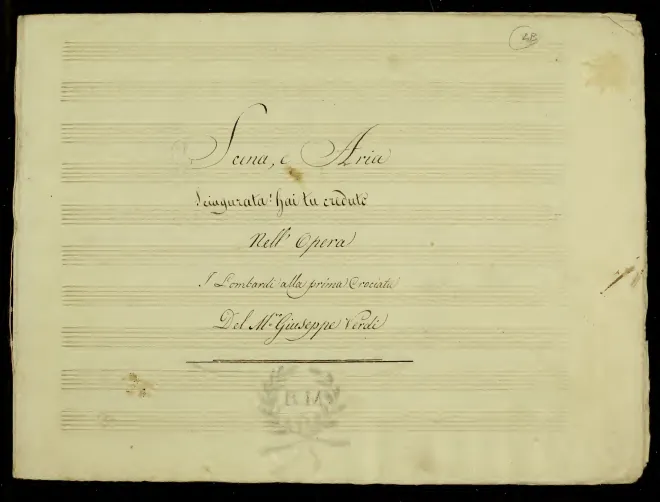 28
Scena, e Aria
Sciagurata! hai tu creduto
Nell' Opera
I Lombardi alla prima Crociata
Del M.ro Giuseppe Verdi